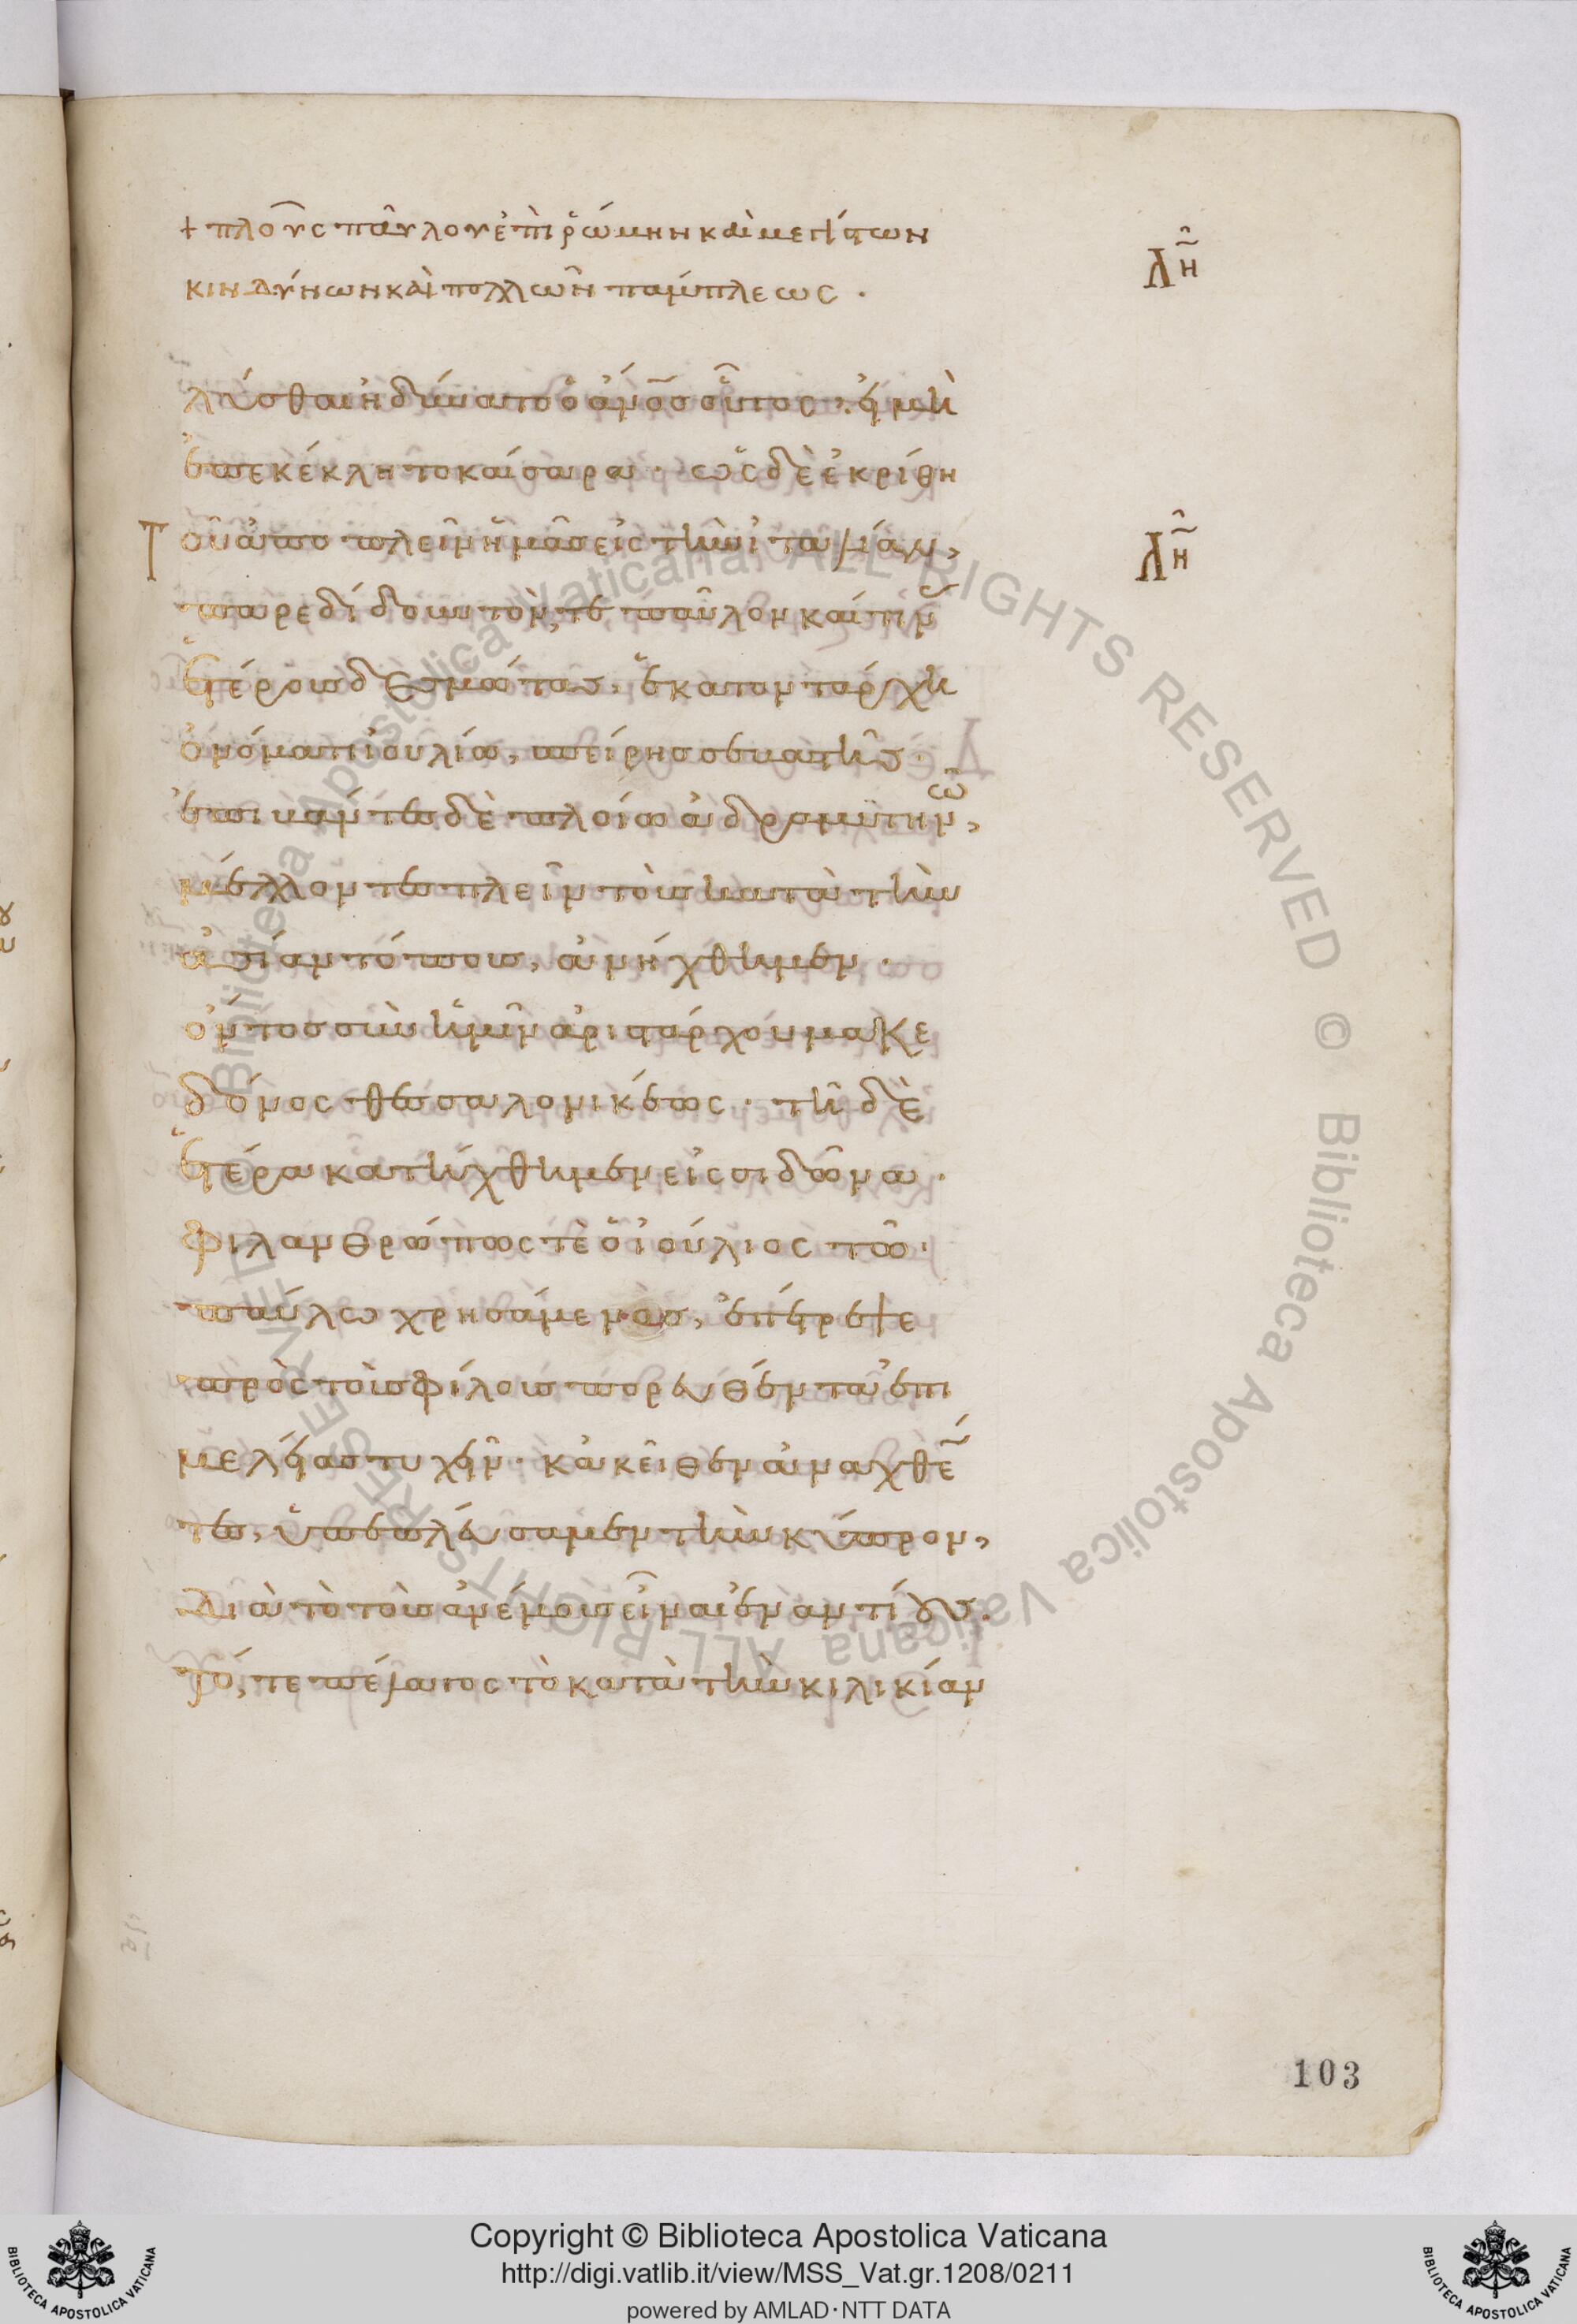 + πλοῦς παύλου ἐπὶ ῥώμην καὶ μεγίστων
κινδύνων καὶ πολλῶν παμπλεως ·
λη
λύσθαι ἠδύνατο ὁ ἄνος οὗτος · εἰ μὴ
ἐπεκέκλητο καίσαρα · ὡς δὲ ἐκρίθη
Τοῦ ἀποπλεῖν ἡμᾶς εἰς τὴν ἰταλίαν,
λη
παρεδίδουν τόν, τε παῦλον καί τινας
ἑτέρους δεσμώτας, ἑκατοντάρχη
ὀνόματι ἰουλίω, σπείρης σεβαστῆς ·
ἐπιβάντες δὲ πλοίω ἀδραμυτηνῶ,
μέλλοντες πλεῖν τοὺς κατὰ τὴν
ἀσίαν τόπους, ἀνήχθημεν ·
ὄντος σὺν ἡμῖν ἀριστάρχου μακε
δόνος θεσσαλονικέως · τῆ δὲ
ἑτέρα κατήχθημεν εἰς σιδῶνα ·
φιλανθρώπως τὲ ὁ ἰούλιος τῶ ·
παύλω χρησάμενος, ἐπέτρεψε
πρὸς τοὺς φίλους πορευθέντα ἐπι
μελείας τυχεῖν · κἀκεῖθεν ἀναχθέν
τες, ὑπεπλεύσαμεν τὴν κύπρον,
Διὰ τὸ τοὺς ἀνέμους εἶναι ἐναντίους.
τό, τε πέλαγος τὸ κατὰ τὴν κιλικίαν
103
© Biblioteca Apostolica Vaticana ALL RIGHTS RESERVED © Biblioteca Apostolica Vaticana ALL RIGHTS RESERVED
Copyright © Biblioteca Apostolica Vaticana
http://digi.vatlib.it/view/MSS_Vat.gr.1208/0211
powered by AMLAD·NTT DATA
BIBLIOTECA APOSTOLICA VATICANA
BIBLIOTECA APOSTOLICA VATICANA